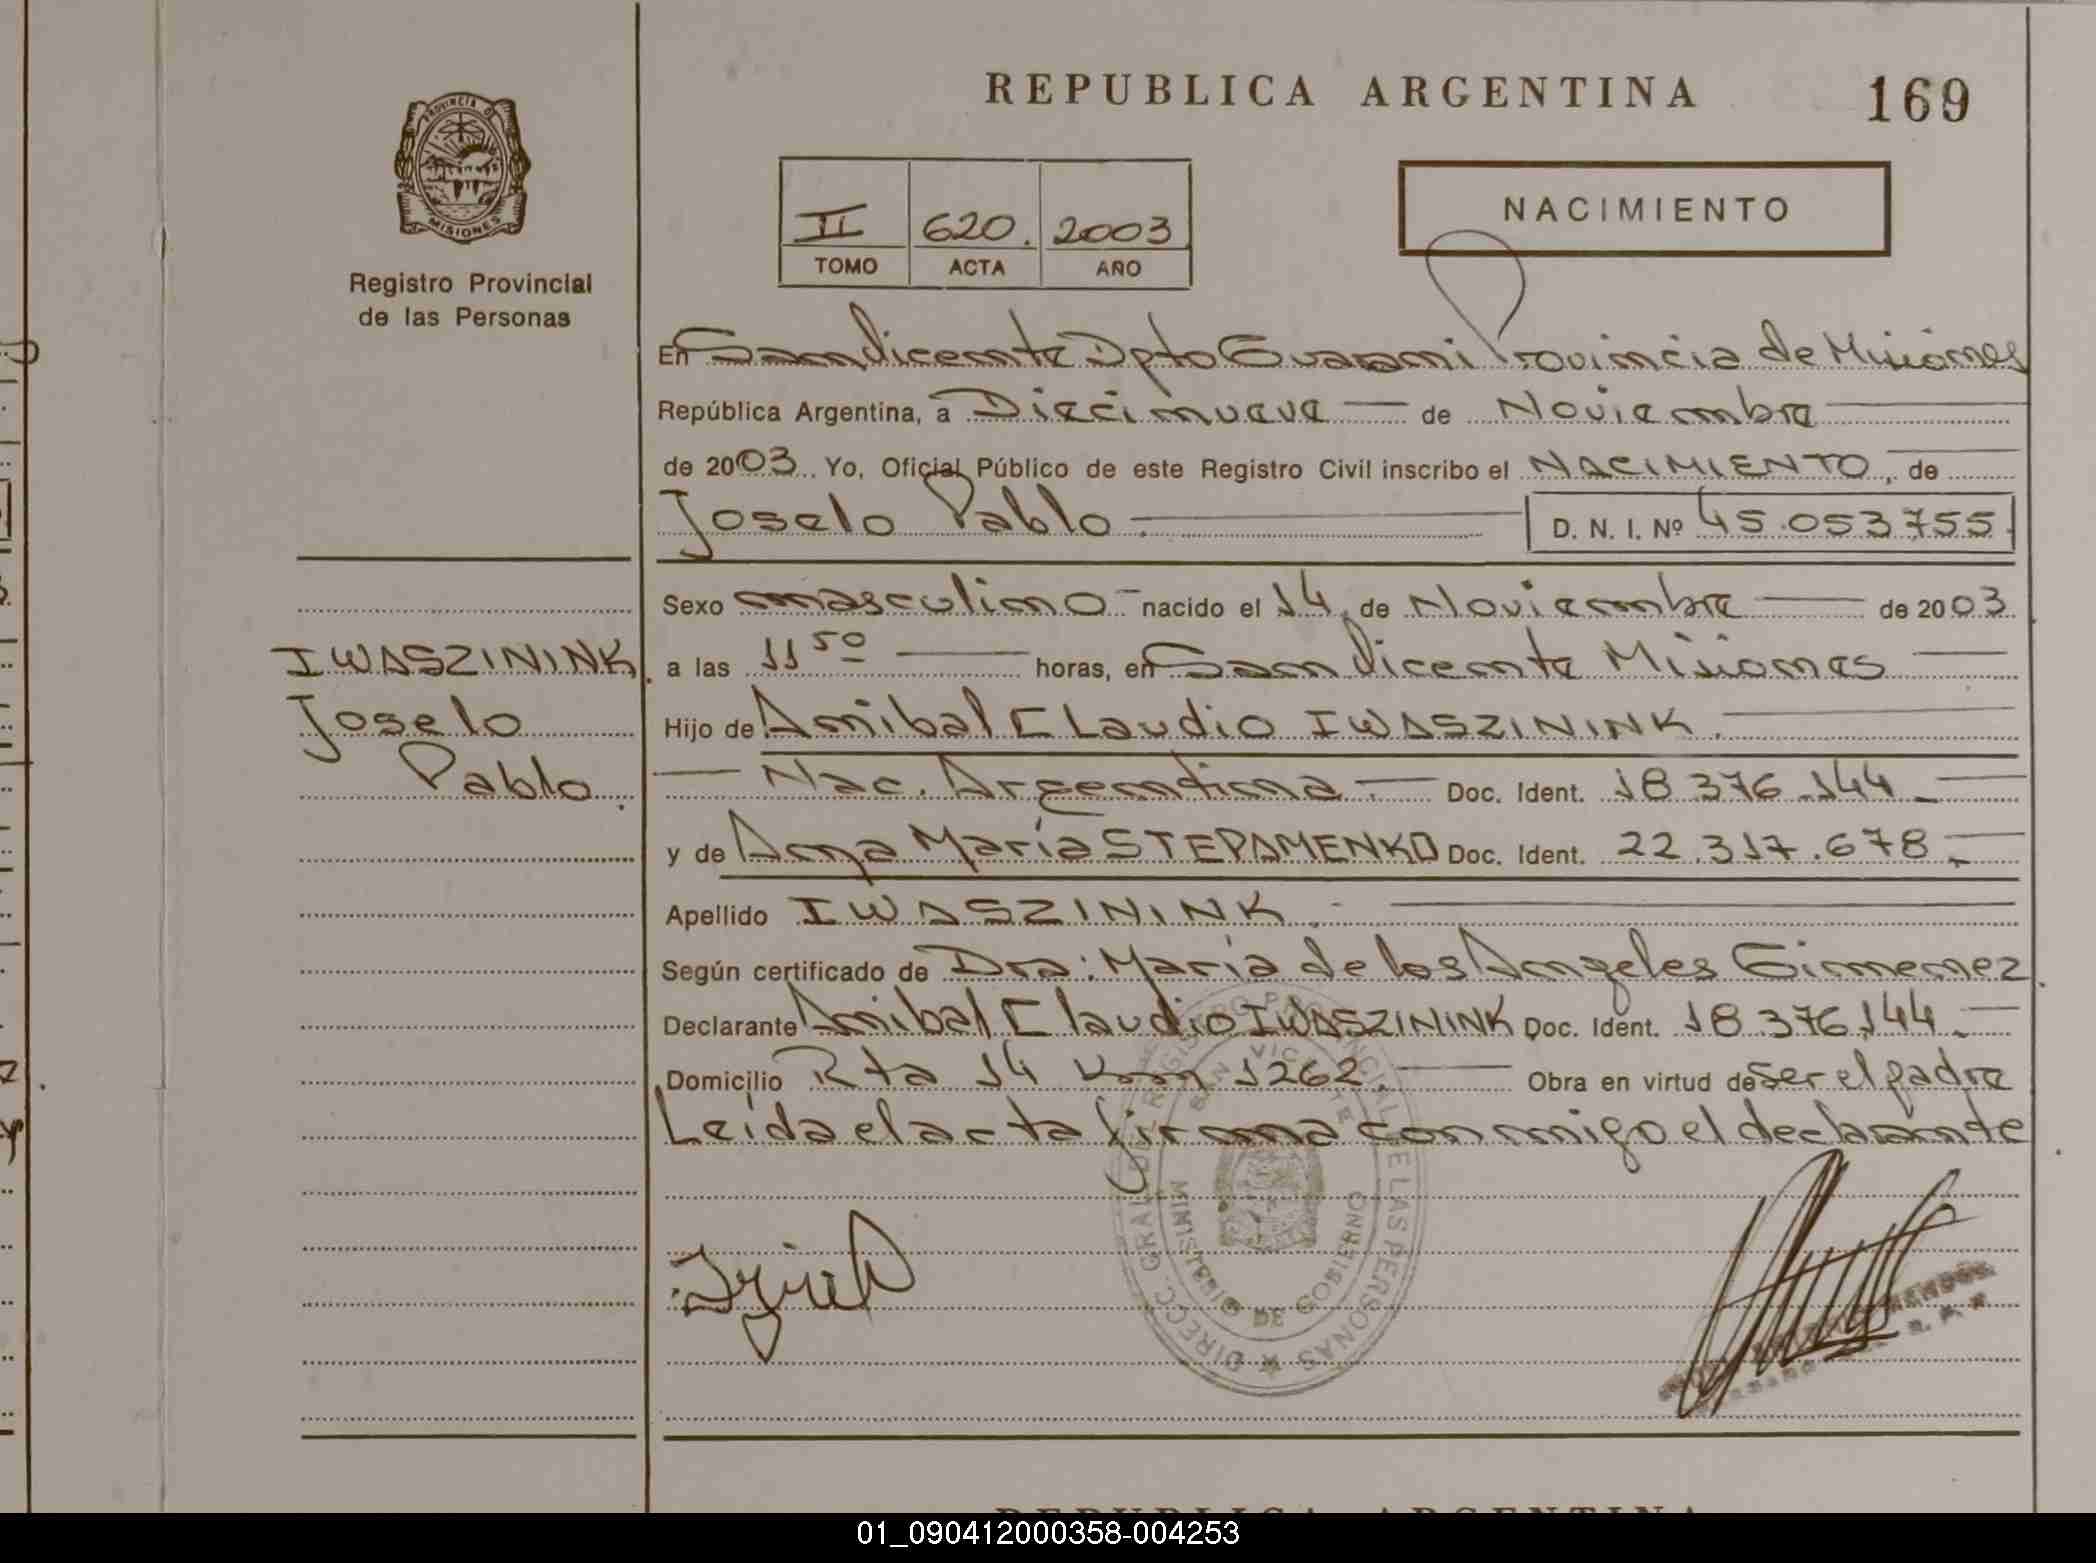 REPUBLICA ARGENTINA
169
PROVINCIA DE
MISIONES
Registro Provincial
de las Personas
II 620. 2003
TOMO ACTA AÑO
NACIMIENTO
En San Vicente Dpto Guarani Provincia de Misiones
República Argentina, a Diecinueve de Noviembre
de 2003 Yo, Oficial Público de este Registro Civil inscribo el NACIMIENTO, de
Joselo Pablo D. N. I. Nº 45.053.755.
Sexo masculino nacido el 14 de Noviembre de 2003
a las 11 50 horas, en San Vicente Misiones
Hijo de Anibal Claudio IWASZININK.
Nac. Argentina. Doc. Ident. 18 376.144
y de Anna María STEPANENKO Doc. Ident. 22.317.678.
Apellido IWASZININK.
Según certificado de Dra: María de los Angeles Gimenez
Declarante Anibal Claudio IWASZININK Doc. Ident. 18 376.144.
Domicilio Rta 14 Km 1262. Obra en virtud de ser el padre
Leída el acta firma conmigo el declarante
IWASZININK
Joselo
Pablo.
DIRECC. GRAL. DEL REGISTRO PROVINCIAL DE LAS PERSONAS
SAN VICENTE
MINISTERIO DE GOBIERNO
REPUBLICA ARGENTINA
01_090412000358-004253